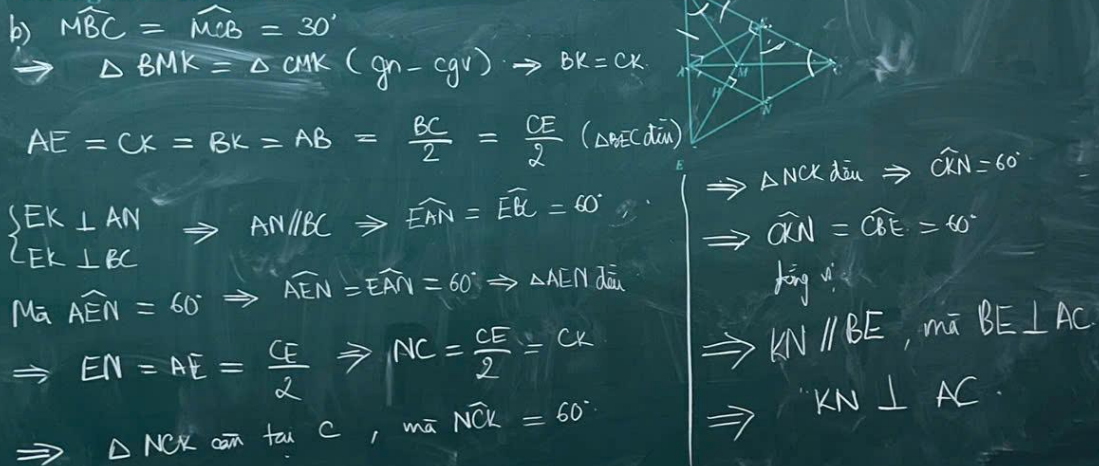 b) \widehat{MBC} = \widehat{MCB} = 30°
⇒ △ BMK = △ CMK (gn - cgv) → BK = CK.
AE = CK = BK = AB = \frac{BC}{2} = \frac{CE}{2} (△BEC đều)
{EK ⊥ AN
{EK ⊥ BC
⇒ AN // BC ⇒ \widehat{EAN} = \widehat{EBC} = 60°
Mà \widehat{AEN} = 60° ⇒ \widehat{AEN} = \widehat{EAN} = 60° ⇒ △AEN đều
⇒ EN = AE = \frac{CE}{2} ⇒ NC = \frac{CE}{2} = CK
⇒ △ NCK cân tại C, mà \widehat{NCK} = 60°
A M H N E
⇒ △NCK đều ⇒ \widehat{CKN} = 60°
⇒ \widehat{CKN} = \widehat{CBE} = 60°
đồng vị
⇒ KN // BE, mà BE ⊥ AC.
⇒ KN ⊥ AC.